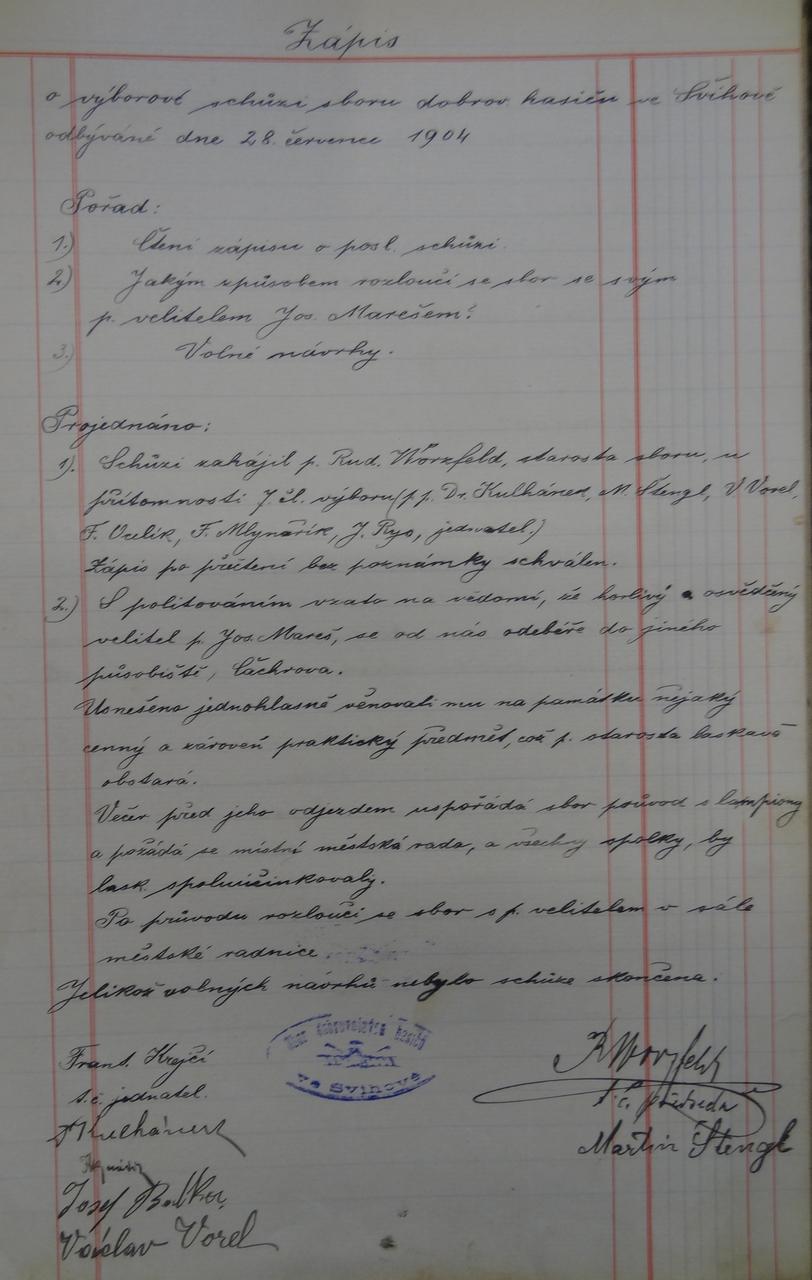 Zápis
o výborové schůzi sboru dobrov. hasičů ve Švihově
odbývané dne 28. července 1904
Pořad:
1.) Čtení zápisu o posl. schůzi.
2) Jakým způsobem rozloučí se sbor se svým
p. velitelem Jos. Marešem?
3.) Volné návrhy.
Projednáno:
1). Schůzi zahájil p. Rud. Worzfeld, starosta sboru, u
přítomnosti 7 čl. výboru (p.p. Dr. Kulhánek, M. Štengl, V Vorel,
F. Ocelík, F. Mlynařík, J. Rys, jednatel.)
Zápis po přečtení bez poznámky schválen.
2.) S politováním vzato na vědomí, že horlivý a osvědčený
velitel p. Jos. Mareš, se od nás odebéře do jiného
působiště, Čáchrova.
Usnešeno jednohlasně věnovati mu na památku nějaký
cenný a zároveň praktický předmět, což p. starosta laskavě
obstará.
Večer před jeho odjezdem uspořádá sbor průvod s lampiony
a požádá se místní městská rada, a všechny spolky, by
lask. spoluúčinkovaly.
Po průvodu rozloučí se sbor s p. velitelem v sále
městské radnice
Jelikož volných návrhů nebylo schůze skončena.
Frant. Krejčí
t.č. jednatel.
Sbor dobrovolných hasičů
ve Švihově
RWorzfeld
t. č. předseda
Kulhánek
Martin Štengl
Josef
Václav Vorel